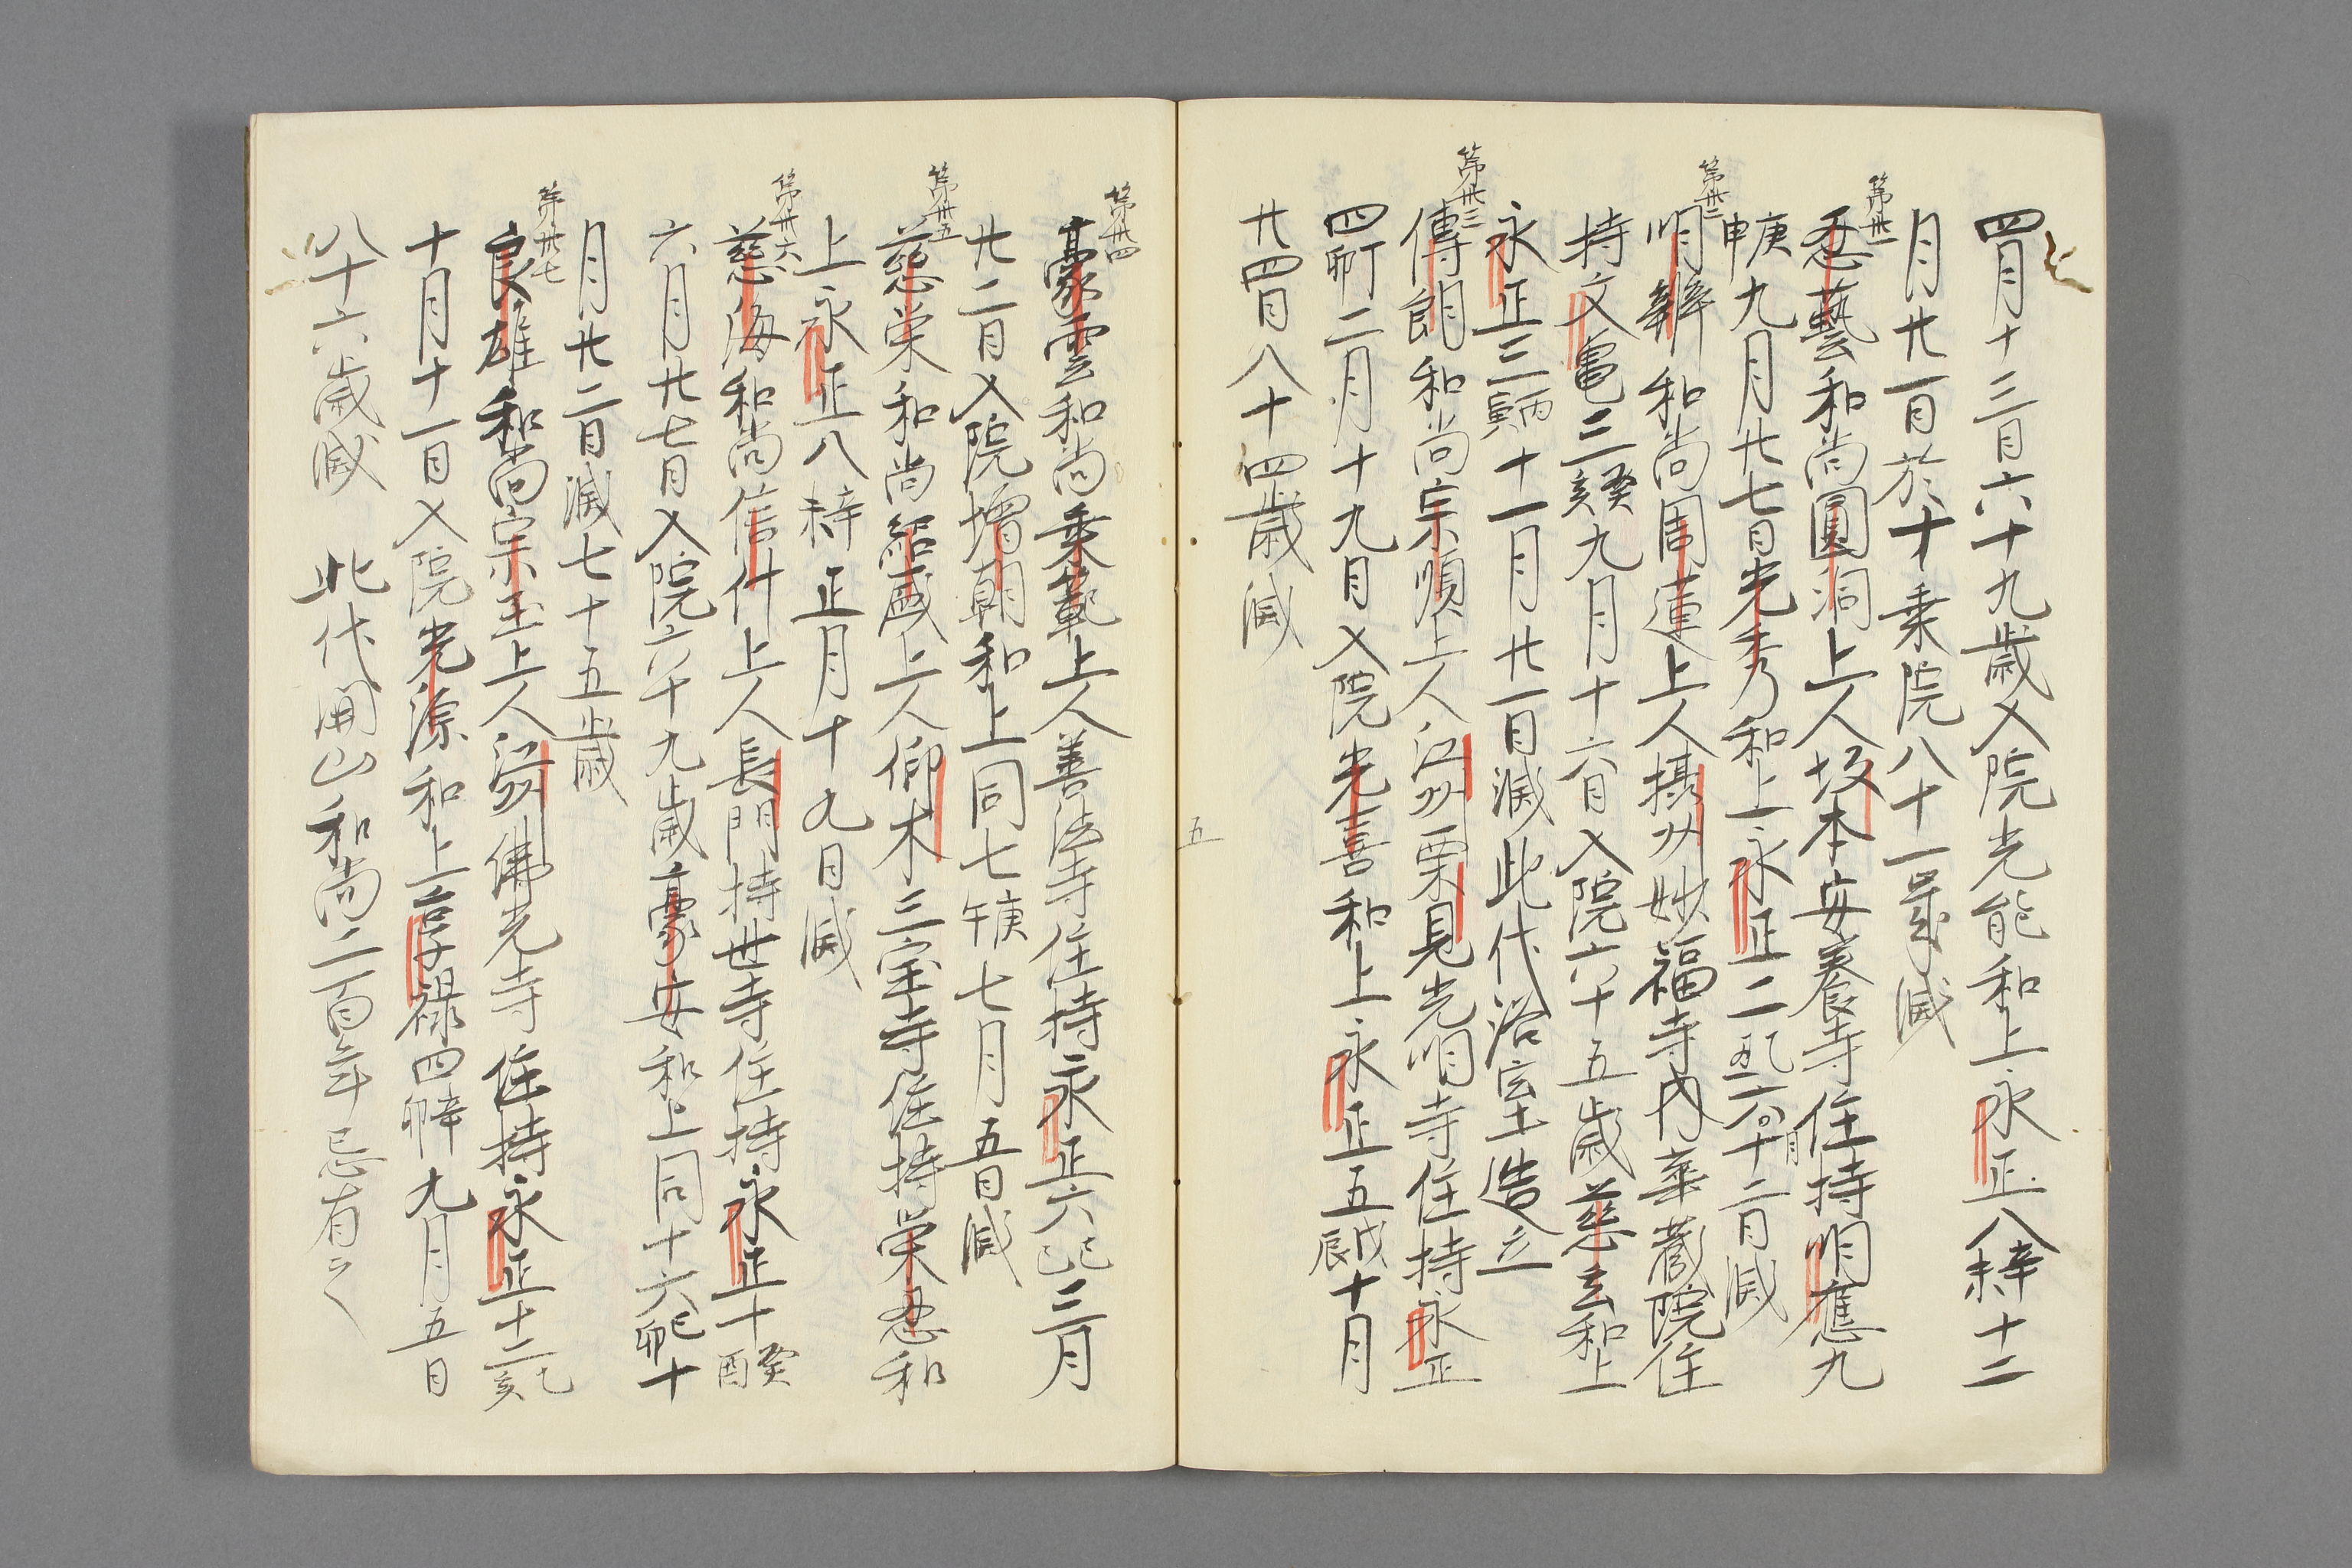 四月十三日六十九歳入院光能和上永正八辛未十二
月廿一日於十乗院八十一歳滅
第卅一
忍藝和尚圓洞上人坂本安養寺住持明應九
庚申九月廿七日光秀和上永正二乙丑六月十二日滅
第卅二
明辨和尚周蓮上人攝州妙福寺内華蔵院住
持文亀三癸亥九月十六日入院六十五歳慈玄和上
永正三丙寅十一月廿一日滅此代浴室造立
第卅三
傳朗和尚宗順上人江州栗見光明寺住持永正
四丁卯二月十九日入院光喜和上永正五戊辰十月
廿四日八十四歳滅
五
第卅四
豪雲和尚乗範上人善法寺住持永正六己巳三月
廿二日入院増朝和上同七庚午七月五日滅
第卅五
慈栄和尚紹盛上人仰木三宝寺住持栄忍和
上永正八辛未正月十九日滅
第卅六
慈海和尚信什上人長門持世寺住持永正十癸酉
六月廿七日入院六十九歳豪安和上同十六己卯十
月廿二日滅七十五歳
第卅七
良雄和尚宗玉上人江州佛光寺住持永正十二乙亥
十月十一日入院光源和上享禄四辛卯九月五日
八十六歳滅 此代開山和尚二百年忌有之